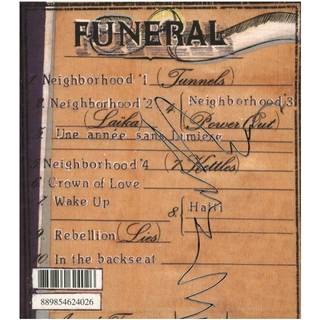 FUNERAL
1. Neighborhood #1 (Tunnels)
2. Neighborhood #2 (Laika)
4 Neighborhood #3 (Power Out)
3. Une année sans Lumiere
5 Neighborhood #4 (7 Kettles)
6 Crown of Love
7 Wake Up
8 Haiti
9 Rebellion (Lies)
10 In the backseat
889854624026